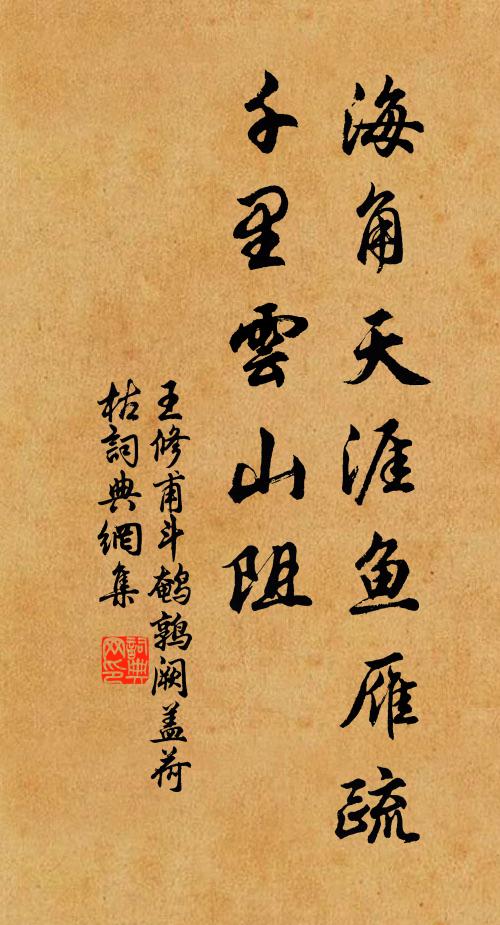 海角天涯鱼雁疏
千里雲山阻
王修甫斗鹌鹑阙盖荷
枯詞典網集
詞典
网印